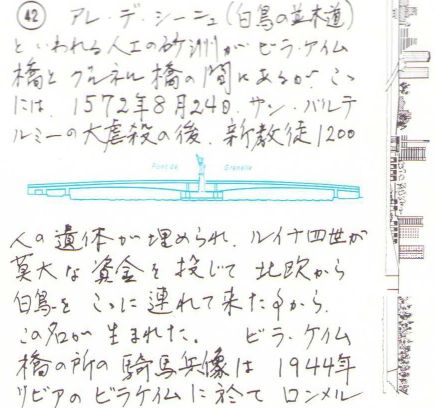 42 アレ・デ・シーニュ(白鳥の並木道)
といわれる人工の砂洲がビラ・ケイム
橋とグルネル橋の間にあるが、ここ
には、1572年8月24日、サン・バルテ
ルミーの大虐殺の後、新教徒1200
Pont de Grenelle
人の遺体が埋められ、ルイ十四世が
莫大な資金を投じて北欧から
白鳥をここに連れて来た事から、
この名が生まれた。 ビラ・ケイム
橋の所の騎馬兵像は1944年
リビアのビラケイムに於てロンメル